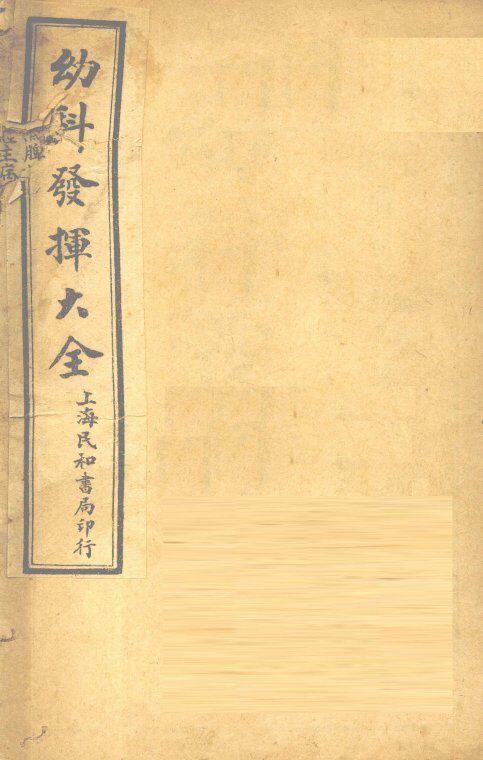 幼科發揮大全
上海民和書局印行
脾
主病